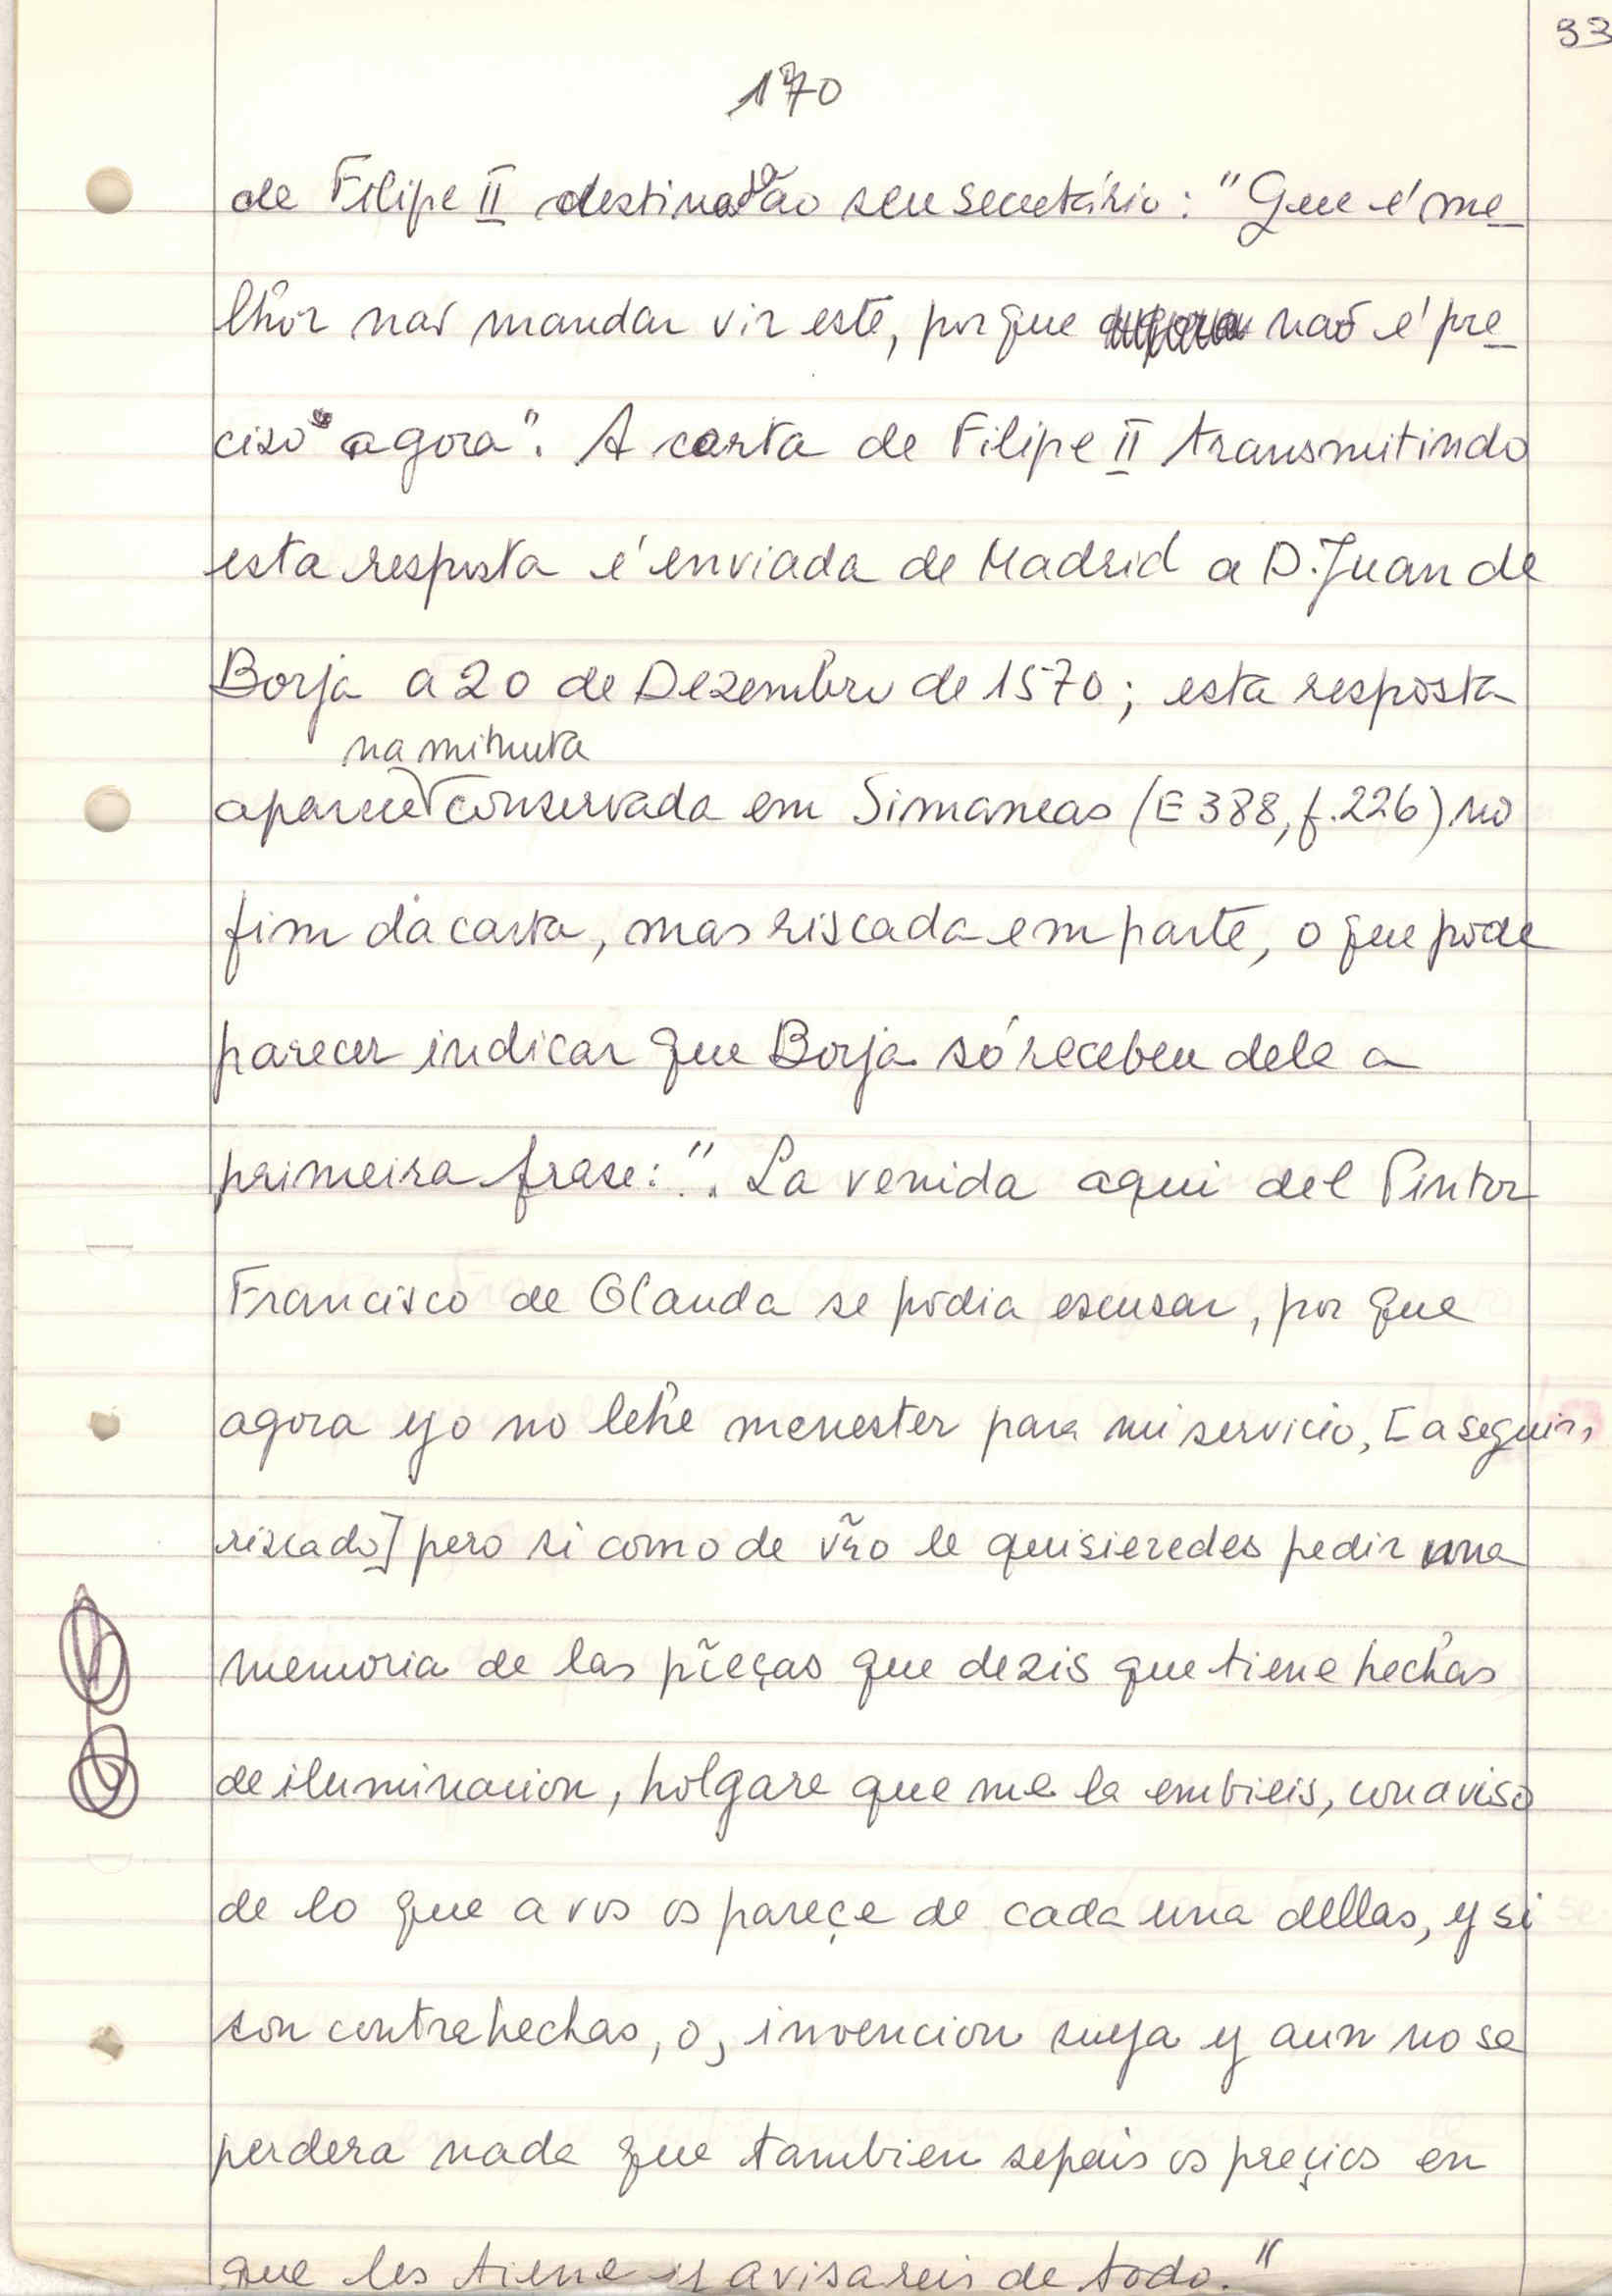 93
170
de Filipe II destinada ao seu secretário: "Que é me-
lhor não mandar vir este, porque agora não é pre-
ciso agora". A carta de Filipe II transmitindo
esta resposta é enviada de Madrid a D. Juan de
Borja a 20 de Dezembro de 1570; esta resposta
na minuta
aparece conservada em Simancas (E 388, f. 226) no
fim da carta, mas riscada em parte, o que pode
parecer indicar que Borja só recebeu dele a
primeira frase: ".. La venida aqui del Pintor
Francisco de Olanda se podia escusar, por que
agora yo no le he menester para mi servicio, [a seguir,
riscado] pero si como de vr̃o le quisieredes pedir una
memoria de las piẽças que dezis que tiene hechas
de iluminacion, holgare que me la embieis, con aviso
de lo que a vos os pareçe de cada una dellas, y si
son contrahechas, o, invencion suya y aun no se
perdera nada que tambien sepais os preçios en
que les tiene y avisareis de todo."